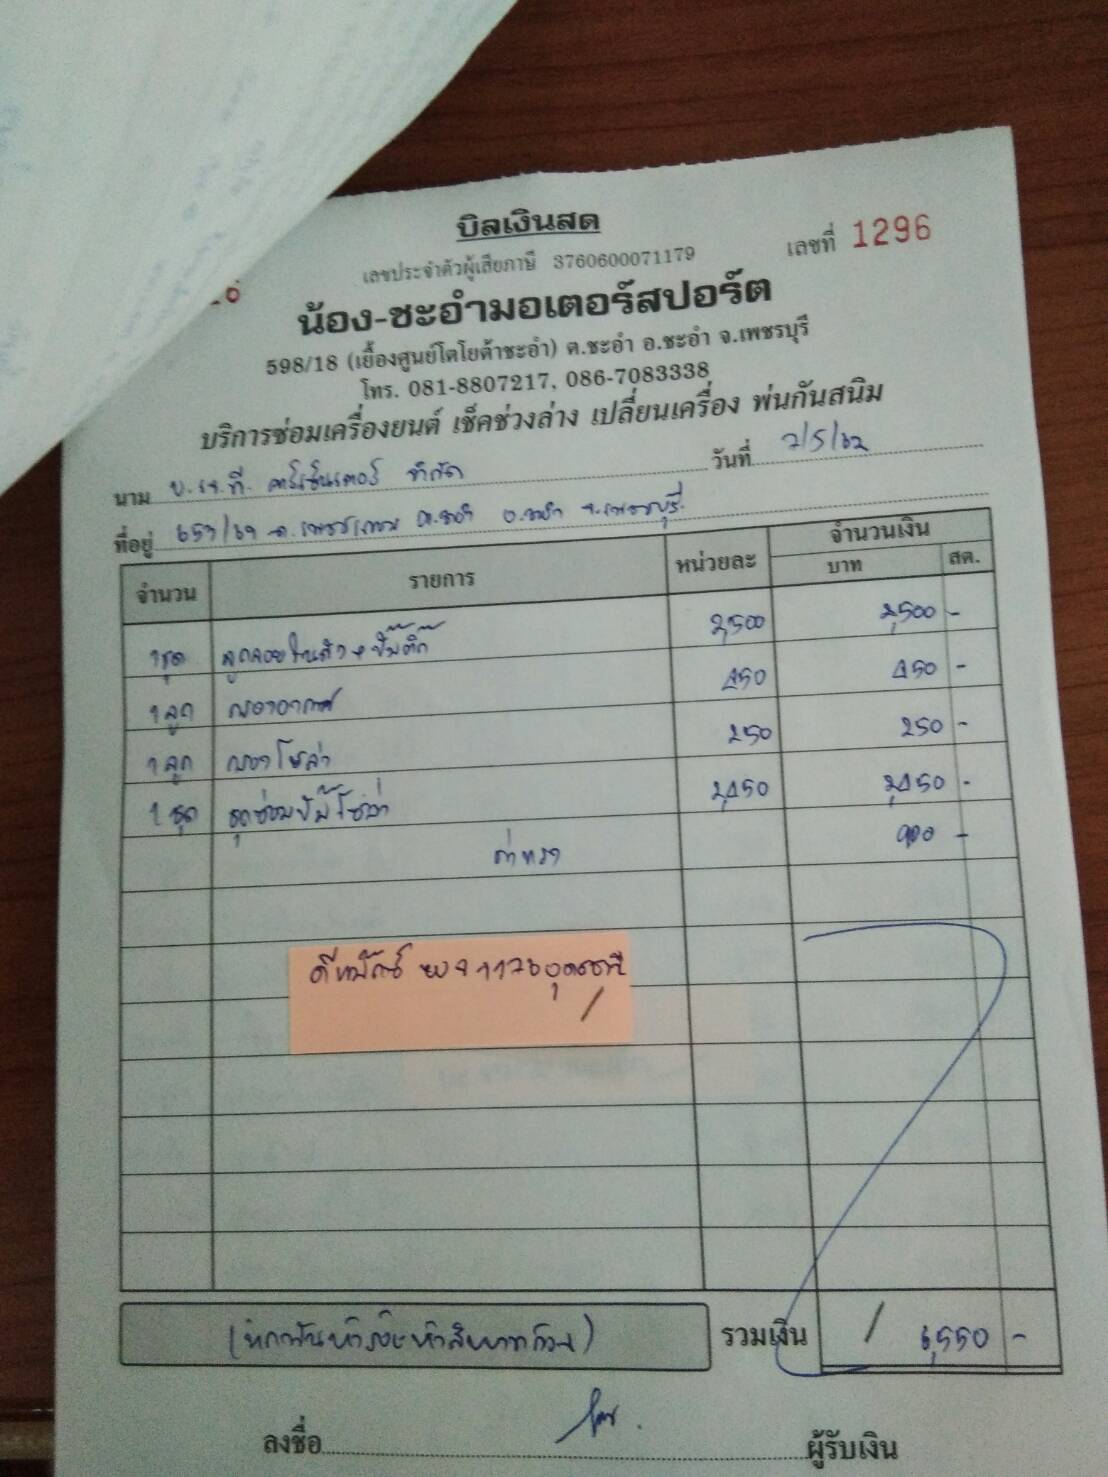 บิลเงินสด
เลขประจำตัวผู้เสียภาษี 3760600071179
เลขที่ 1296
น้อง-ชะอำมอเตอร์สปอร์ต
598/18 (เยื้องศูนย์โตโยต้าชะอำ) ต.ชะอำ อ.ชะอำ จ.เพชรบุรี
โทร. 081-8807217, 086-7083338
บริการซ่อมเครื่องยนต์ เช็คช่วงล่าง เปลี่ยนเครื่อง พ่นกันสนิม
นาม จำกัด วันที่ 7/5/62
ที่อยู่ ถ.เพชรเกษม ต.ชะอำ อ.ชะอำ จ.เพชรบุรี
จำนวน รายการ หน่วยละ จำนวนเงิน
บาท สต.
1ชุด ลูกลอยในถัง+ปั๊มติ๊ก 2,500 2,500 -
1ลูก กรองอากาศ 450 450 -
1ลูก กรองโซล่า 250 250 -
1 ชุด ชุดซ่อมปั๊มโซล่า 2,450 2,450 -
ค่าแรง 900 -
(หกพันห้าร้อยห้าสิบบาทถ้วน) รวมเงิน 6,550 -
ลงชื่อ ผู้รับเงิน